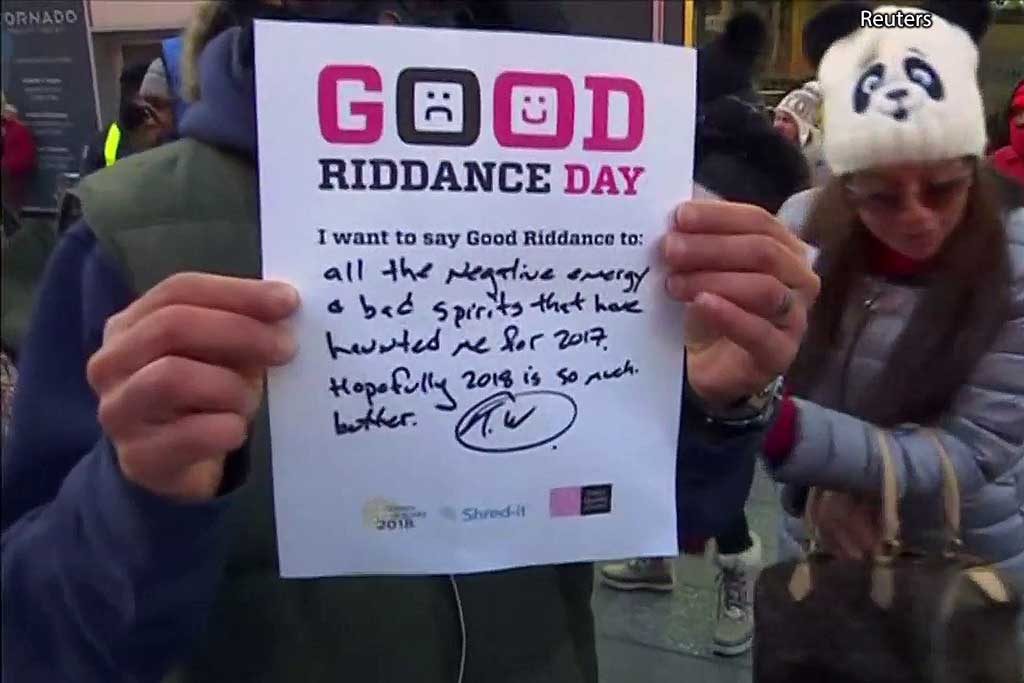 ORNADO
Reuters
GOOD
RIDDANCE DAY
I want to say Good Riddance to:
all the Negative energy
& bad spirits that have
haunted me for 2017.
Hopefully 2018 is so much.
better. T.W.
2018
Shred-it